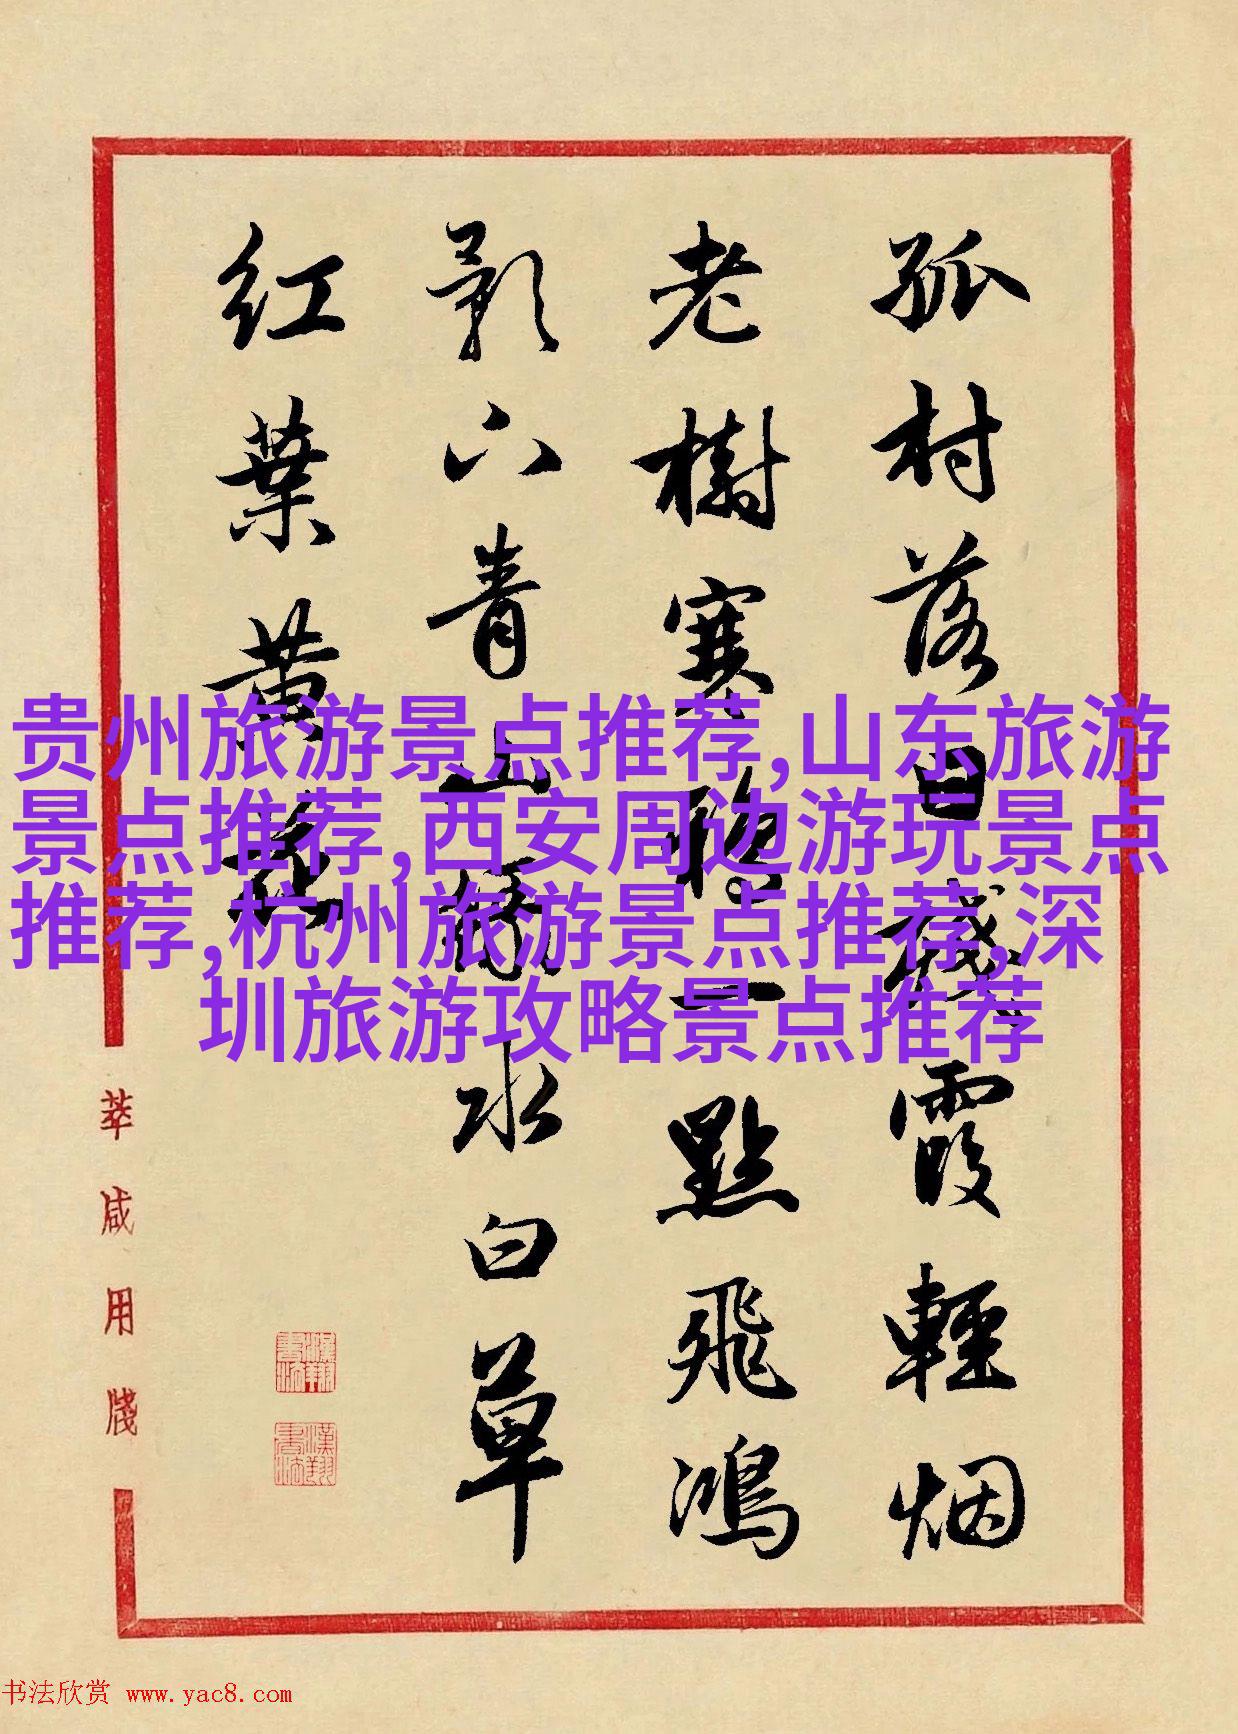 孤村落日残霞輕烟
老樹寒鴉一點飛鴻
影下青山綠水白草
紅葉黄花
贵州旅游景点推荐,山东旅游
景点推荐,西安周边游玩景点
推荐,杭州旅游景点推荐,深
圳旅游攻略景点推荐
萃咸用牋
书法欣赏 www.yac8.com